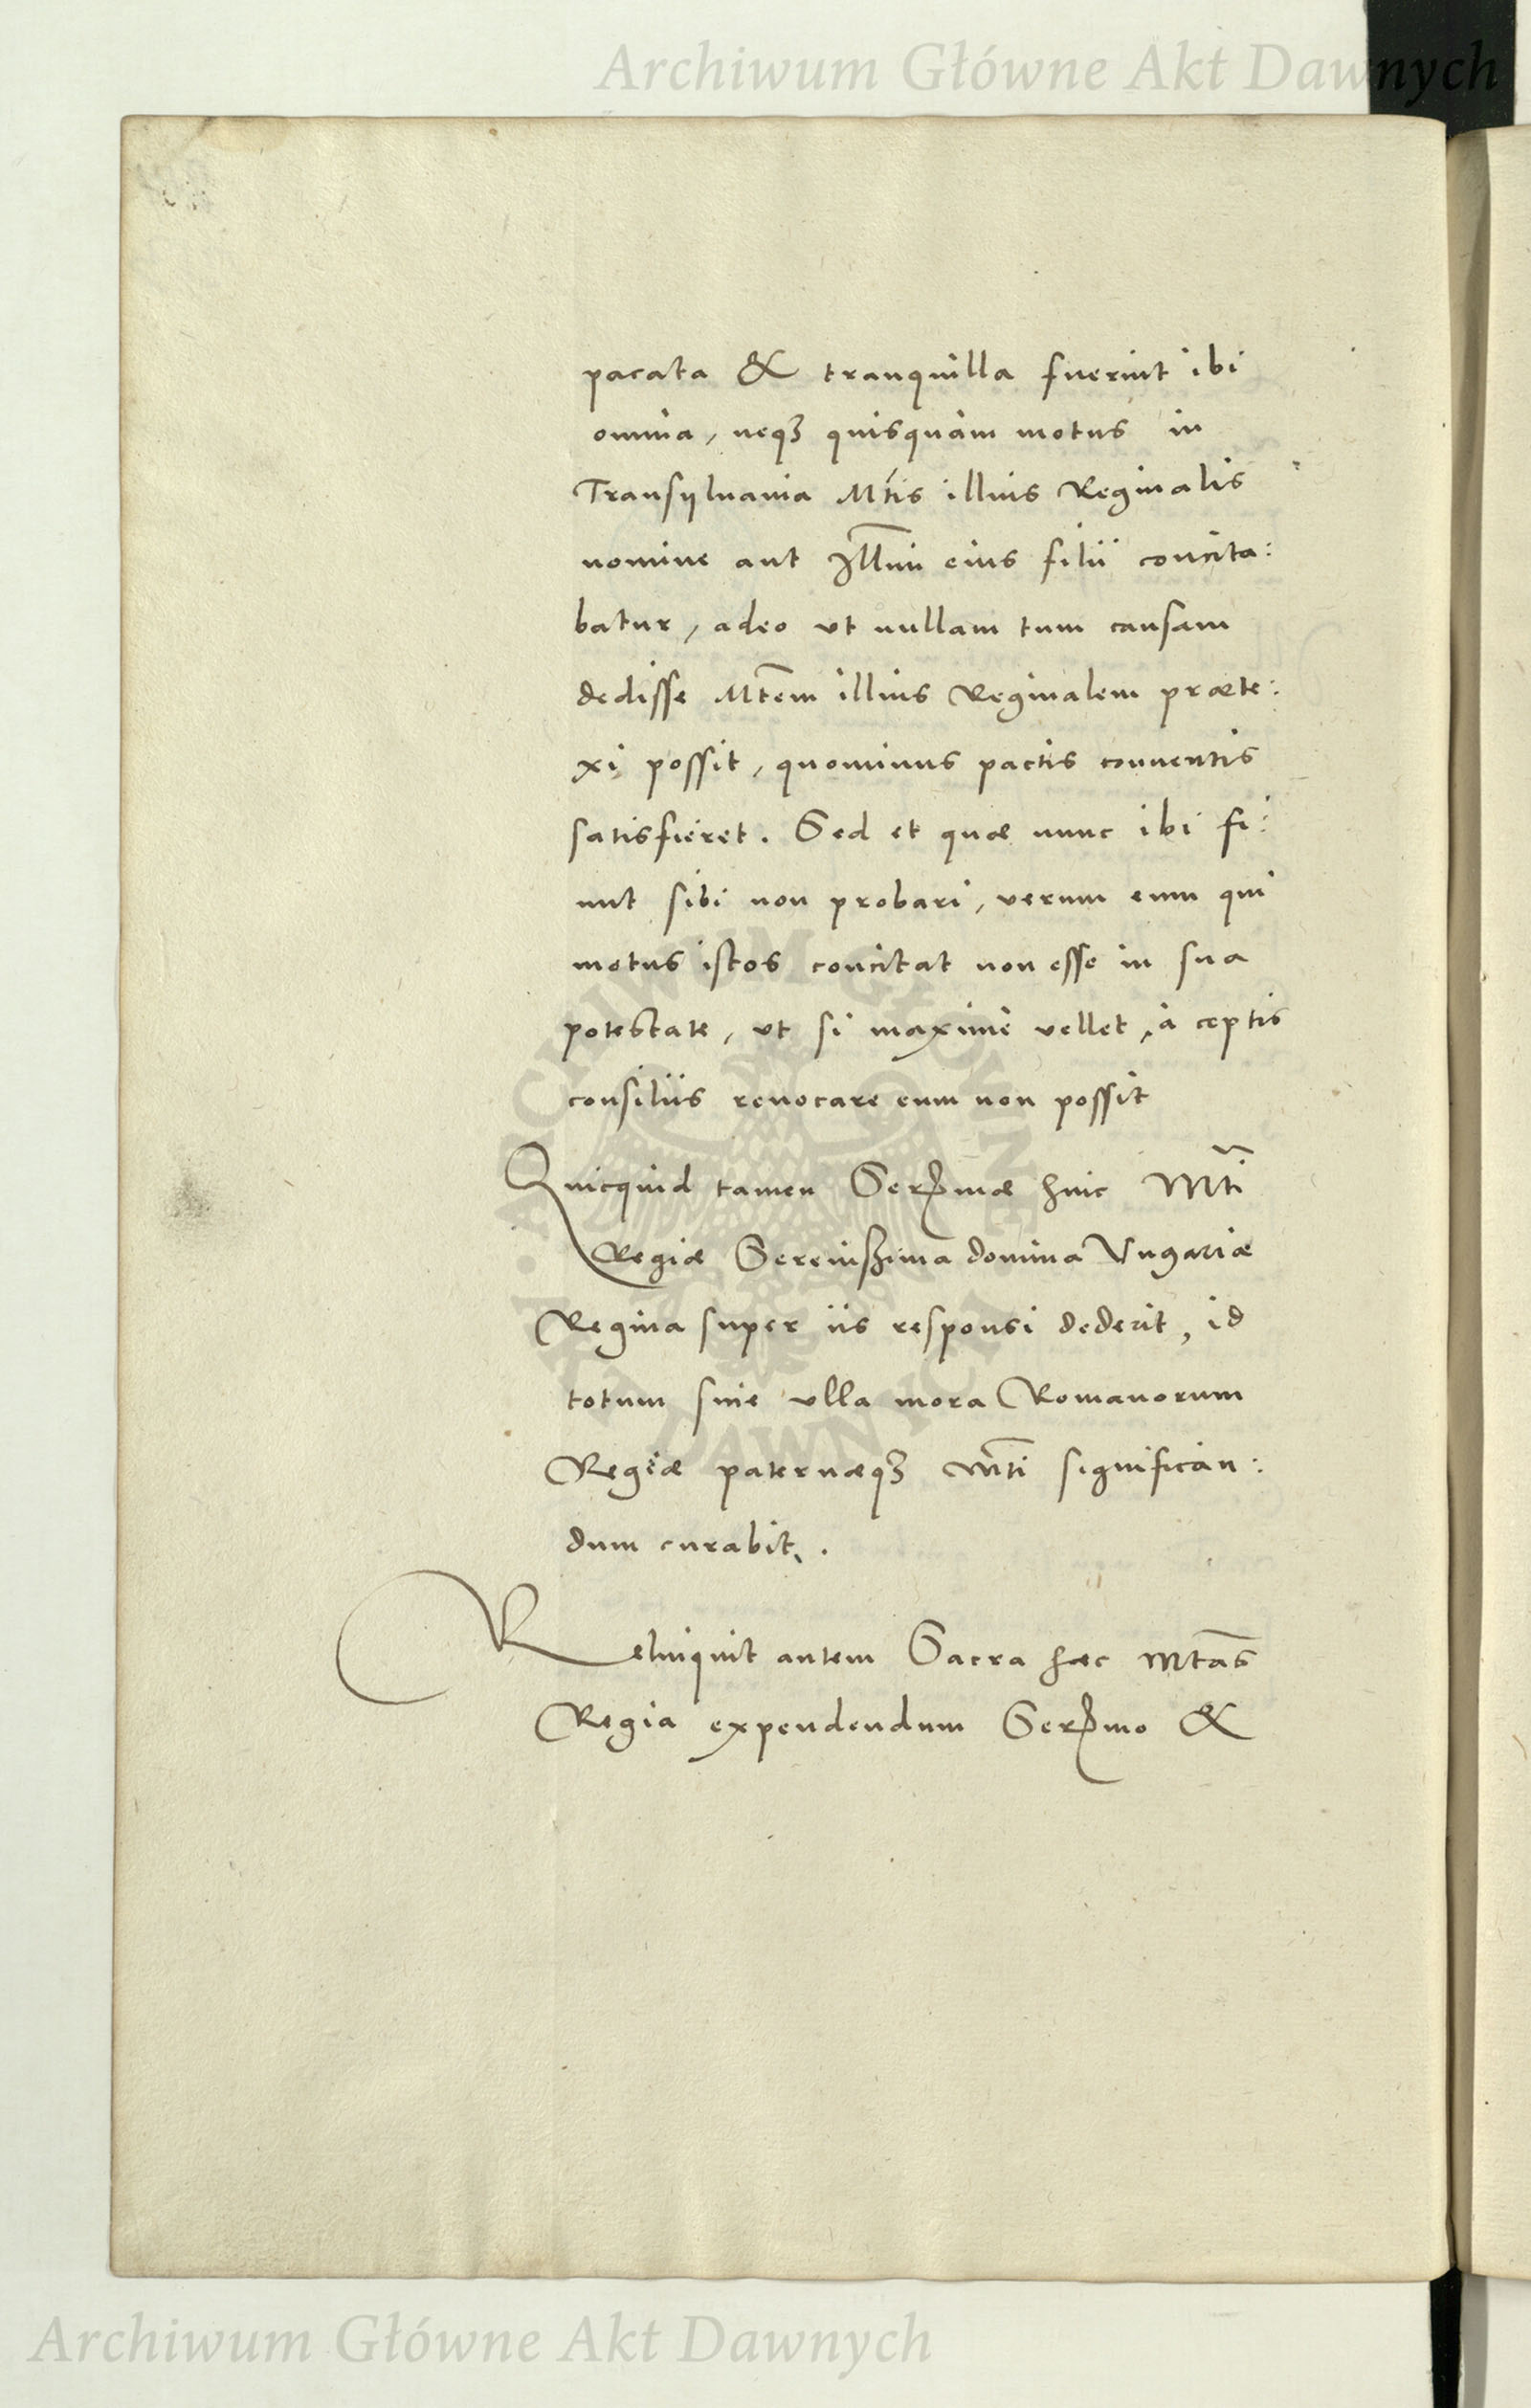 Archiwum Główne Akt Dawnych
pacata & tranquilla fuerint ibi
omnia, neqȝ quisquam motus in
Transylvania Mtis illius Reginalis
nomine aut Illmi eius filii concita:
batur, adeo vt nullam tum causam
dedisse Mtem illius Reginalem præte:
xi possit, quominus pactis conventis
satisfieret. Sed et quæ nunc ibi fi:
unt sibi non probari, verum eum qui
motus istos concitat non esse in sua
potestate, vt si maxime vellet, à ceptis
consiliis revocare eum non possit
Quicquid tamen Sermæ huic Mti
Regiæ Serenissima domina Vngariæ
Regina super iis responsi dederit, id
totum sine vlla mora Romanorum
Regiæ paternæqȝ Mti significan:
dum curabit.
Relinquit autem Sacra hæc Mtas
Regia expendendum Sermo &
ARCHIWUM GŁÓWNE AKT DAWNYCH
Archiwum Główne Akt Dawnych